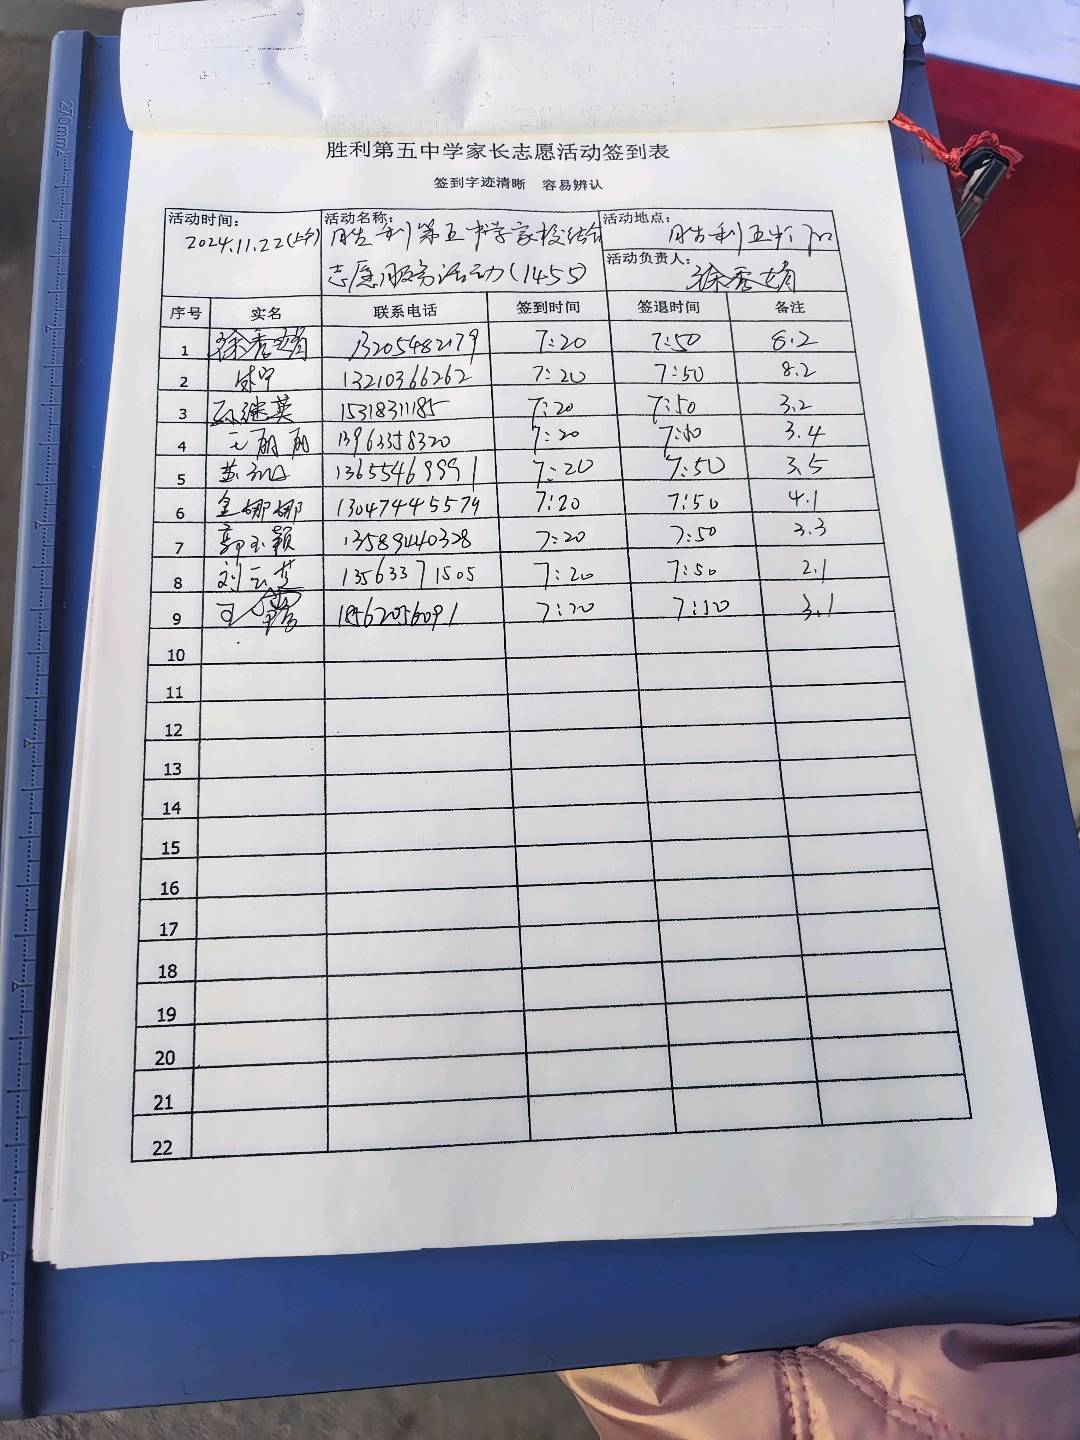 270mm
胜利第五中学家长志愿活动签到表
签到字迹清晰 容易辨认
活动时间: 2024.11.22(上午)
活动名称: 胜利第五中学家校结合
志愿服务活动(1455)
活动地点: 胜利五中门口
活动负责人: 徐秀娟
序号 实名 联系电话 签到时间 签退时间 备注
1 徐秀娟 13205482179 7:20 7:50 8.2
2 13210366262 7:20 7:50 8.2
3 孙继英 15318311185 7:20 7:50 3.2
4 王丽丽 13963358320 7:20 7:50 3.4
5 13655469991 7:20 7:50 3.5
6 金娜娜 13047445579 7:20 7:50 4.1
7 郭玉颖 13589440328 7:20 7:50 3.3
8 刘云芝 13563371505 7:20 7:50 2.1
9 王 18562056091 7:20 7:50 3.1
10
11
12
13
14
15
16
17
18
19
20
21
22